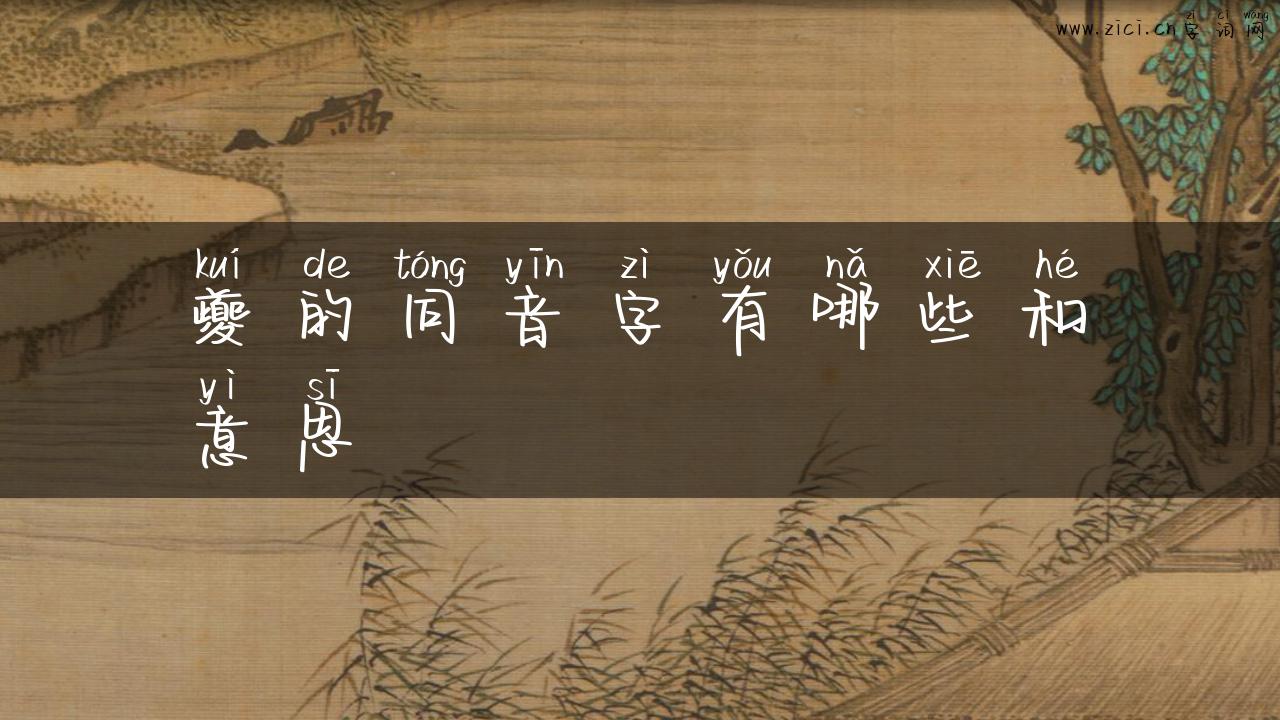 zì cí wǎng
www.zici.cn字词网
kuí de tóng yīn zì yǒu nǎ xiē hé
夔的同音字有哪些和
yì sī
意思